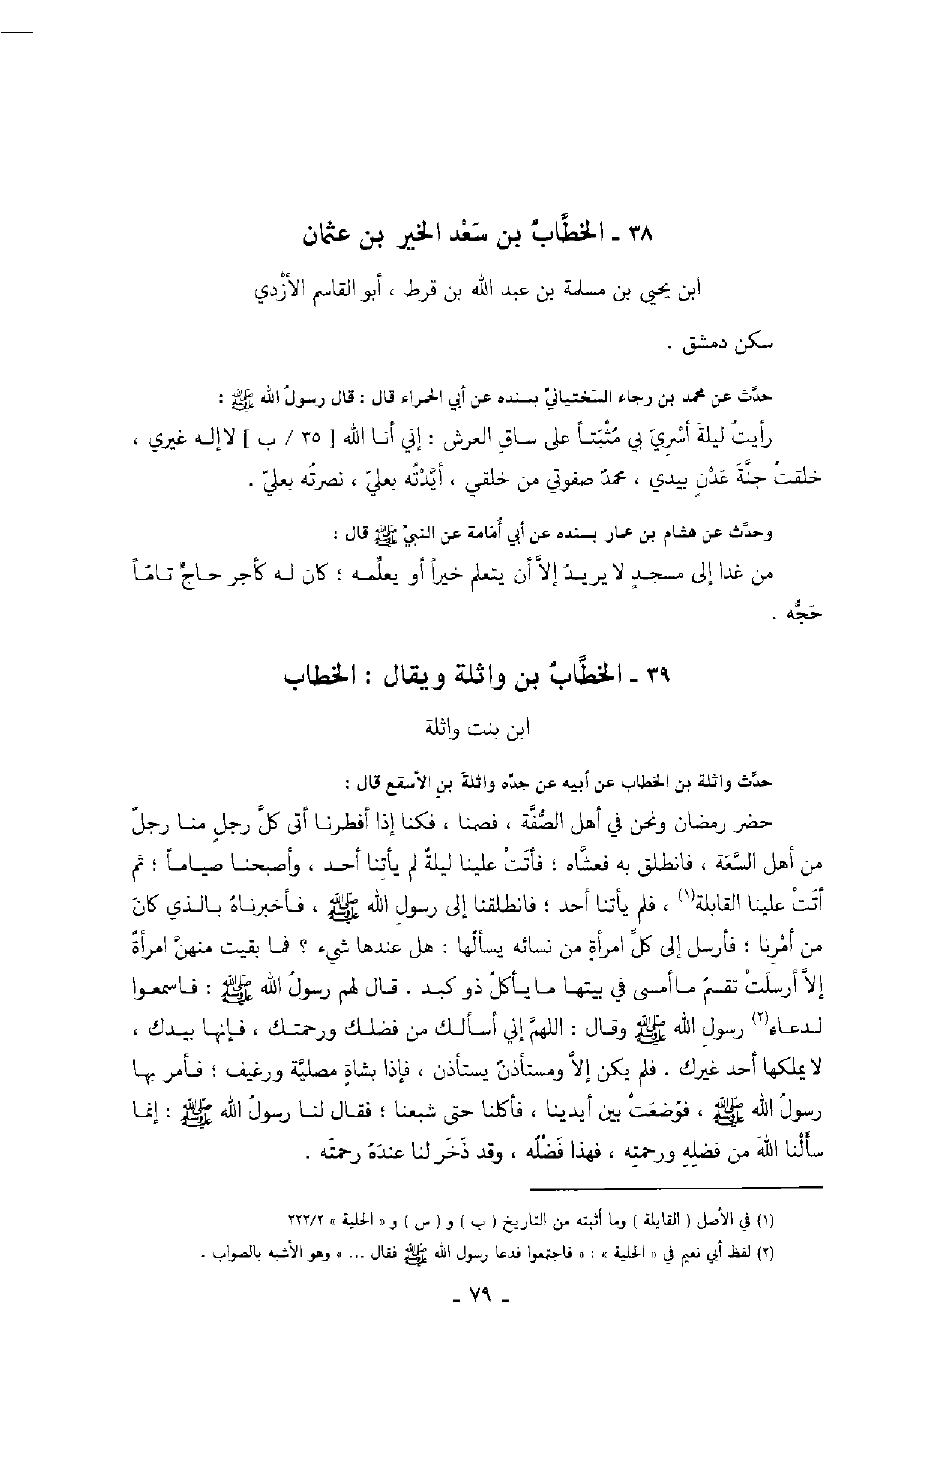 ٣٨ ـ الخطَّابُ بن سَعْد الخير بن عثمان
ابن يحيى بن مسلمة بن عبد الله بن قرط ، أبو القاسم الأزْدي
سكن دمشق .
حدَّث عن محمد بن رجاء السَّختيانيّ بسنده عن أبي الحمراء قال : قال رسولُ الله ﷺ :
رأيتُ ليلة أُسْرِيَ بي مُثْبَتاً على ساقِ العرش : إني أنا الله [ ٣٥ / ب ] لاإله غيري ،
خلقتُ جنَّةَ عَدْنٍ بيدي ، محمدٌ صفوتي من خلقي ، أيَّدْتُه بعليّ ، نصرتُه بعليّ .
وحدَّث عن هشام بن عمار بسنده عن أبي أُمَامة عن النبيّ ﷺ قال :
من غدا إلى مسجدٍ لا يريدُ إلاَّ أن يتعلم خيراً أو يعلِّمه ؛ كان له كأجر حاجٍّ تامّاً
حَجُّه .
٣٩ ـ الخطَّابُ بن واثلة ويقال : الخطاب
ابن بنت واثلة
حدَّث واثلة بن الخطاب عن أبيه عن جدّه واثلةَ بنِ الأسقع قال :
حضر رمضان ونحن في أهل الصُّفَّة ، فصمنا ، فكنا إذا أفطرنا أتى كلَّ رجلٍ منا رجلٌ
من أهل السَّعَة ، فانطلق به فعشَّاه ؛ فأتَتْ علينا ليلةٌ لم يأتِنا أحد ، وأصبحنا صياماً ؛ ثم
أتَتْ علينا القابلة(١) ، فلم يأتنا أحد ؛ فانطلقنا إلى رسولِ الله ﷺ ، فأخبرناهُ بالذي كانَ
من أمْرِنا ؛ فأرسل إلى كلِّ امرأةٍ من نسائه يسألُها : هل عندها شيء ؟ فما بقيت منهنَّ امرأةٌ
إلاَّ أرسلَتْ تقسمُ ماأمسى في بيتها مايأكلُ ذو كبد . قال لهم رسولُ الله ﷺ : فاسمعوا
لدعاء(٢) رسولِ الله ﷺ وقال : اللهمَّ إني أسألك من فضلك ورحمتك ، فإنها بيدك ،
لا يملكها أحد غيرك . فلم يكن إلاَّ ومستأذنٌ يستأذن ، فإذا بشاةٍ مصليَّة ورغيف ؛ فأمر بها
رسولُ الله ﷺ ، فوُضعَتْ بين أيدينا ، فأكلنا حتى شبعنا ؛ فقال لنا رسولُ الله ﷺ : إنما
سأَلْنا اللهَ من فضلِهِ ورحمتِه ، فهذا فَضْلُه ، وقد ذَخَر لنا عندَهُ رحمتَه .
(١) في الأصل ( القايلة ) وما أثبته من التاريخ ( ب ) و ( س ) و « الحلية » ٢٢٢/٢
(٢) لفظ أبي نعيم في « الحلية » : « فاجتمعوا فدعا رسول الله ﷺ فقال ... » وهو الأشبه بالصواب .
ـ ٧٩ ـ